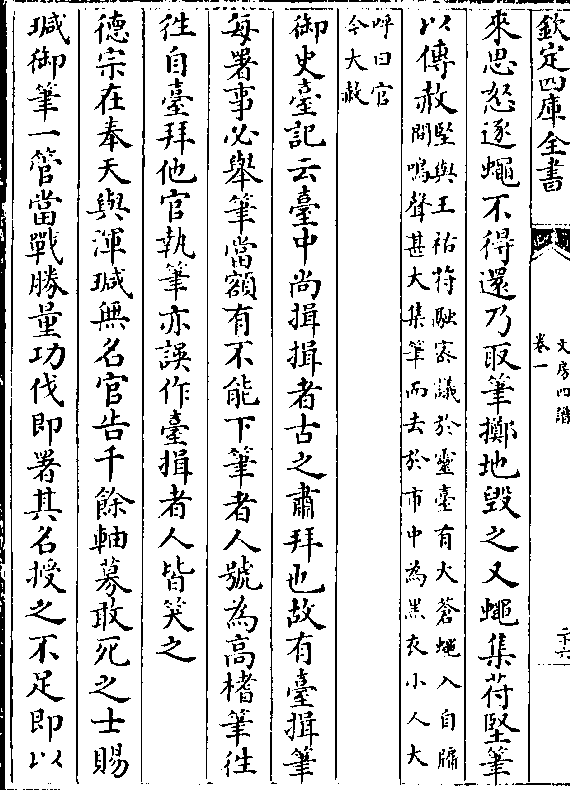 欽定四庫全書
文房四譜
卷一
二十六
來思怒逐蠅不得還乃取筆擲地毁之又蠅集苻堅筆
以傳赦堅與王祐苻融宻議於靈臺有大蒼蠅入自牖
間鳴聲甚大集筆而去於市中為黑衣小人大
呼曰官
今大赦
御史臺記云臺中尚揖揖者古之肅拜也故有臺揖筆
每署事必舉筆當額有不能下筆者人號為高楮筆徃
徃自臺拜他官執筆亦誤作臺揖者人皆笑之
德宗在奉天與渾瑊無名官告千餘軸募敢死之士賜
瑊御筆一管當戰勝量功伐即署其名授之不足即以